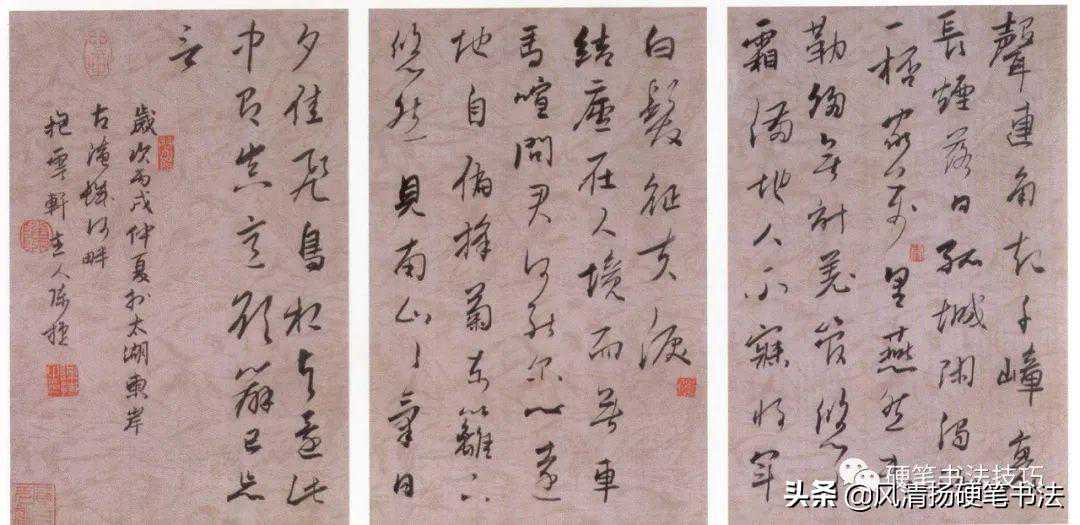 聲連角起千嶂裏
長煙落日孤城閉濁
一杯家萬里燕然未
勒歸無計羌管悠
霜滿地人不寐將軍
白髮征夫淚
結廬在人境而無車
馬喧問君何能爾心遠
地自偏採菊東籬下
悠然見南山山氣日
夕佳飛鳥相與還此
中有真意欲辯已忘
言
歲次丙戌仲夏於太湖東岸
古河畔
抱雲軒主人陳
硬笔书法技巧
头条 @风清扬硬笔书法